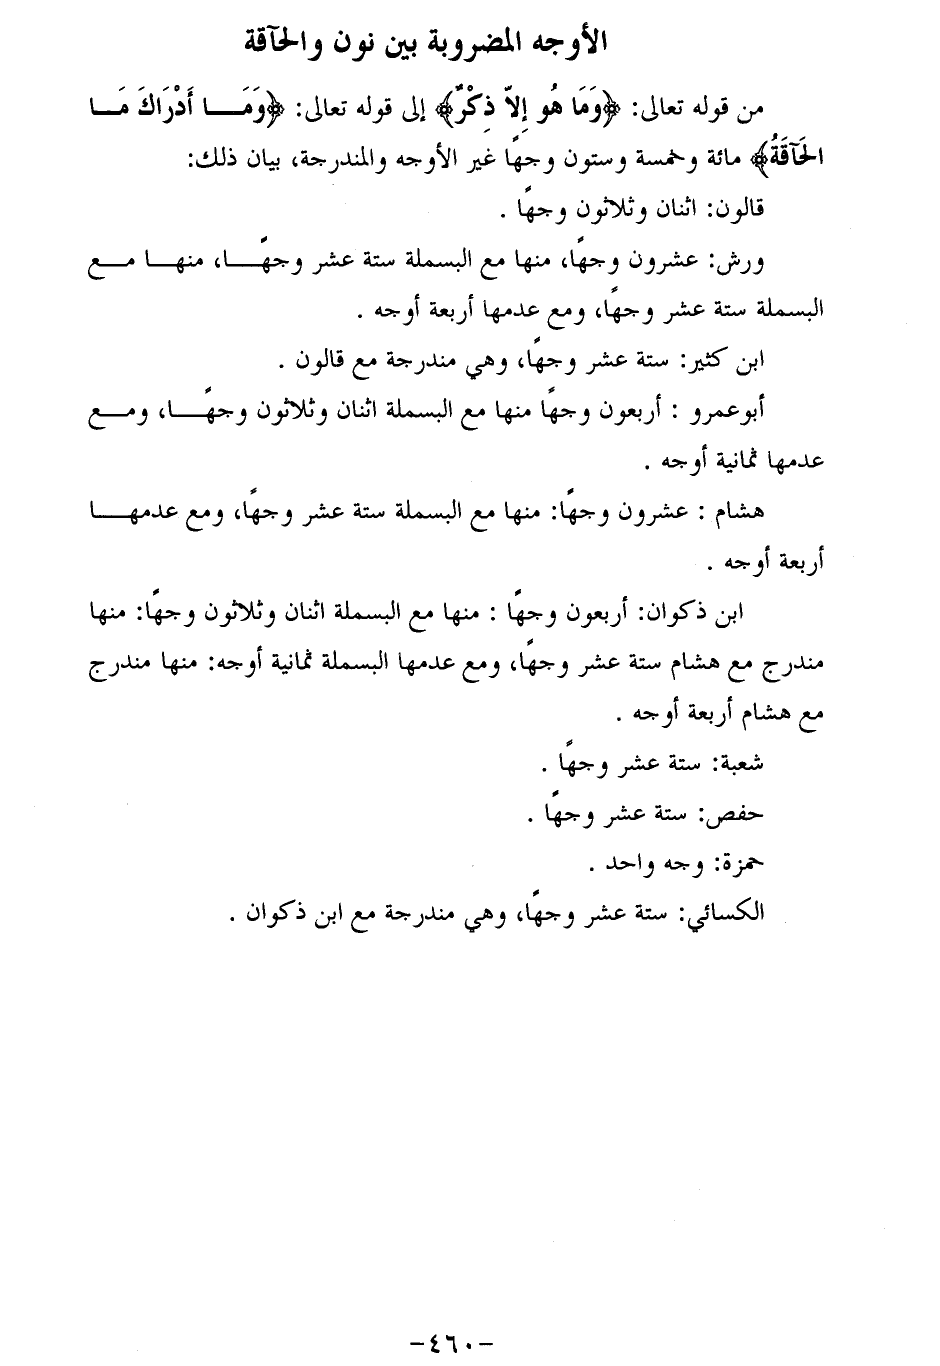 الأوجه المضروبة بين نون والحآقة
من قوله تعالى: ﴿وَمَا هُو إِلاّ ذِكْرٌ﴾ إلى قوله تعالى: ﴿وَمَـــا أَدْرَاكَ مَـــا
الحَآقَةُ﴾ مائة وخمسة وستون وجهًا غير الأوجه والمندرجة، بيان ذلك:
قالون: اثنان وثلاثون وجهًا .
ورش: عشرون وجهًا، منها مع البسملة ستة عشر وجهًـــا، منهـــا مـــع
البسملة ستة عشر وجهًا، ومع عدمها أربعة أوجه .
ابن كثير: ستة عشر وجهًا، وهي مندرجة مع قالون .
أبوعمرو : أربعون وجهًا منها مع البسملة اثنان وثلاثون وجهًـــا، ومـــع
عدمها ثمانية أوجه .
هشام : عشرون وجهًا: منها مع البسملة ستة عشر وجهًا، ومع عدمهـــا
أربعة أوجه .
ابن ذكوان: أربعون وجهًا : منها مع البسملة اثنان وثلاثون وجهًا: منها
مندرج مع هشام ستة عشر وجهًا، ومع عدمها البسملة ثمانية أوجه: منها مندرج
مع هشام أربعة أوجه .
شعبة: ستة عشر وجهًا .
حفص: ستة عشر وجهًا .
حمزة: وجه واحد .
الكسائي: ستة عشر وجهًا، وهي مندرجة مع ابن ذكوان .
-٤٦٠-